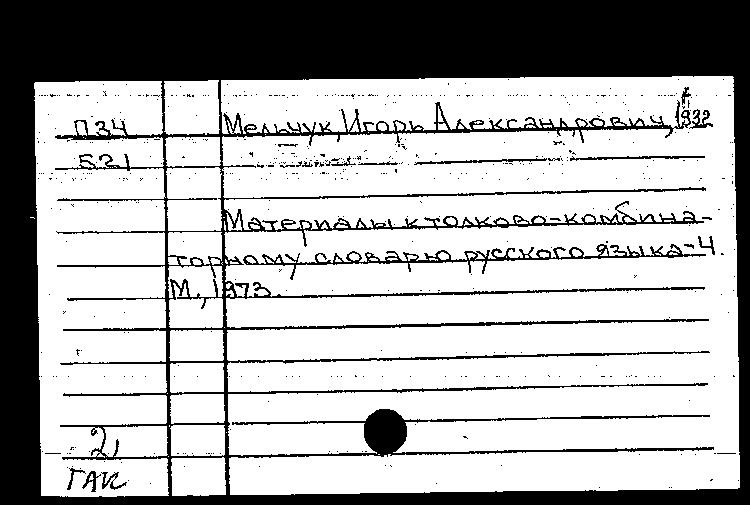 П34 Мельчук, Игорь Александрович, 1932
521
Материалы к толково-комбина-
торному словарю русского языка-4.
М., 1973.
2,
ГАК